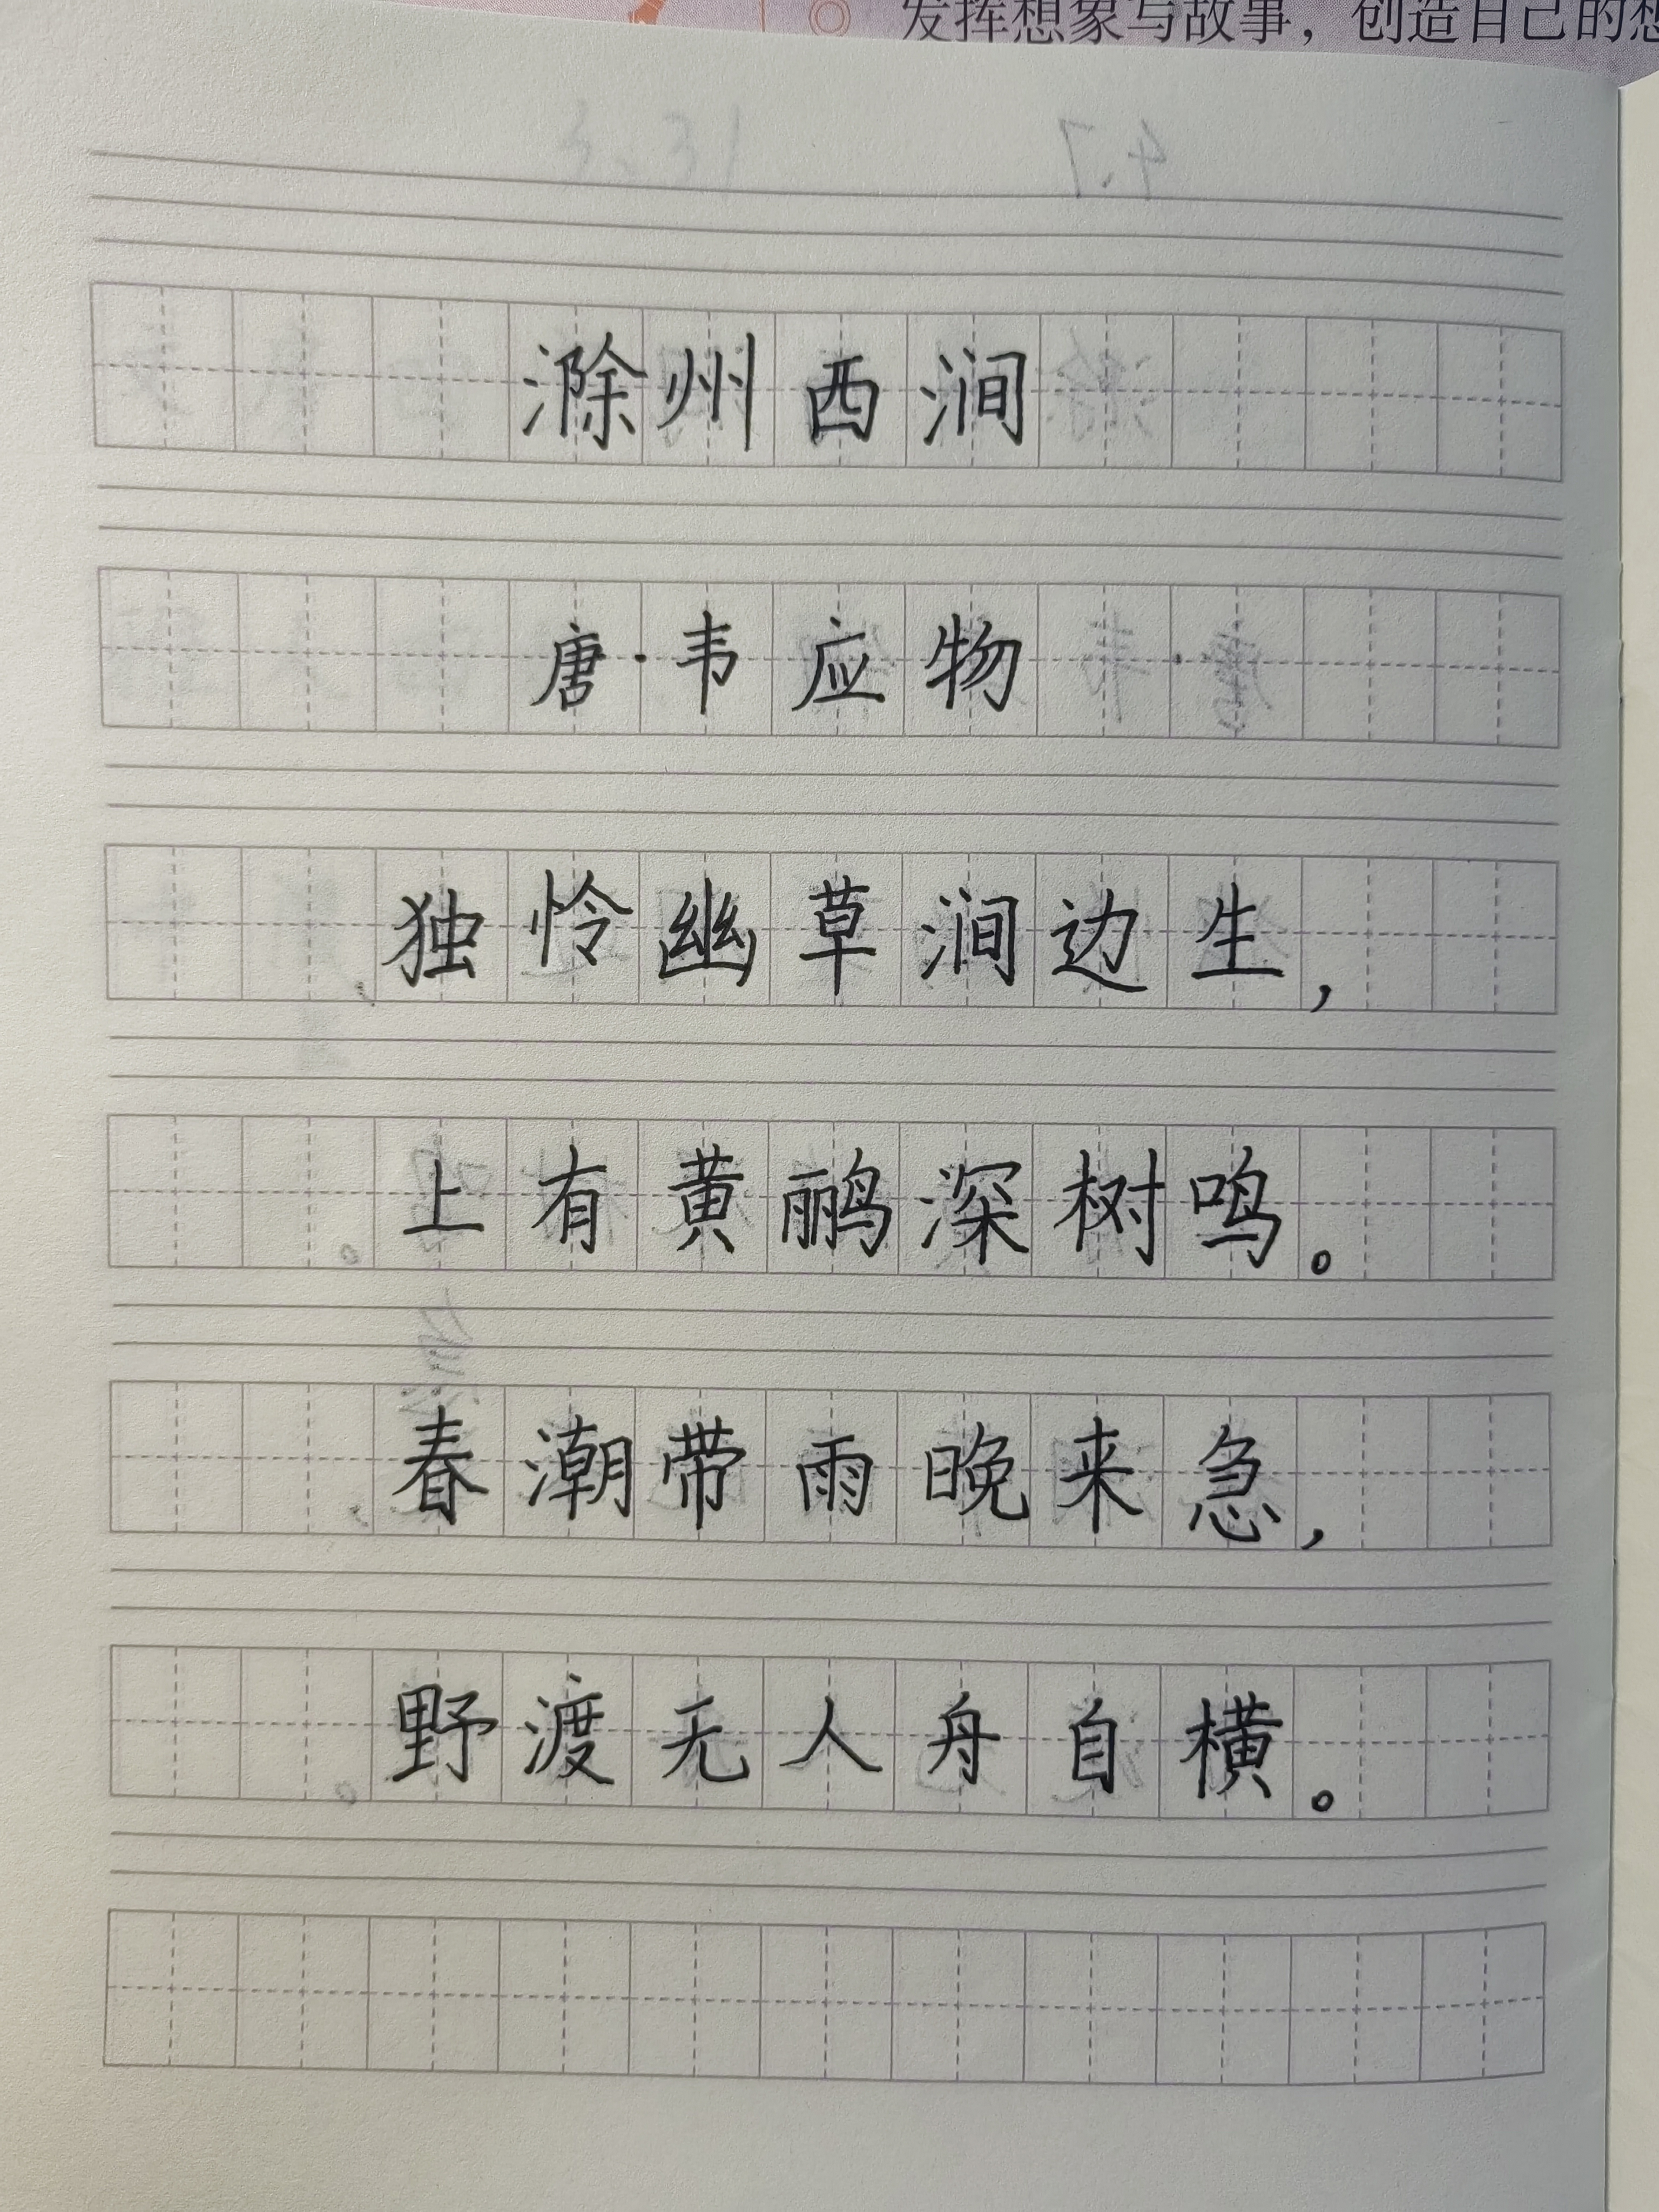 发挥想象写故事，创造自己的想
滁州西涧
唐·韦应物
独怜幽草涧边生，
上有黄鹂深树鸣。
春潮带雨晚来急，
野渡无人舟自横。